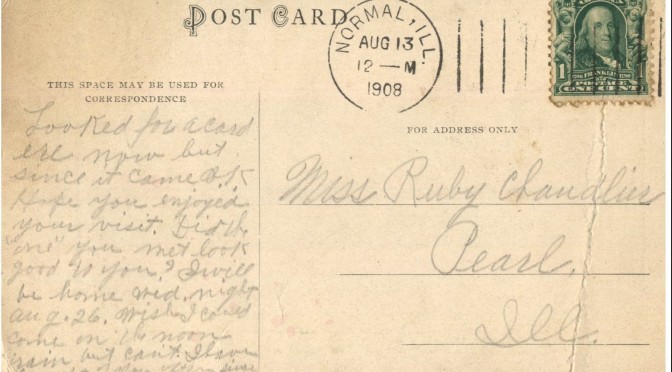 POST CARD
NORMAL, ILL.
AUG 13
12—M
1908
1
FRANKLIN
POSTAGE
ONE CENT
THIS SPACE MAY BE USED FOR
CORRESPONDENCE
FOR ADDRESS ONLY
Looked for a card
ere now but
since it came O.K.
Hope you enjoyed
your visit. Did the
"one" you met look
good to you? I will
be home Wed. night
Aug. 26. Wish I could
come on the noon
train but can't. I have
since
Miss Ruby Chandlier
Pearl,
Ill.